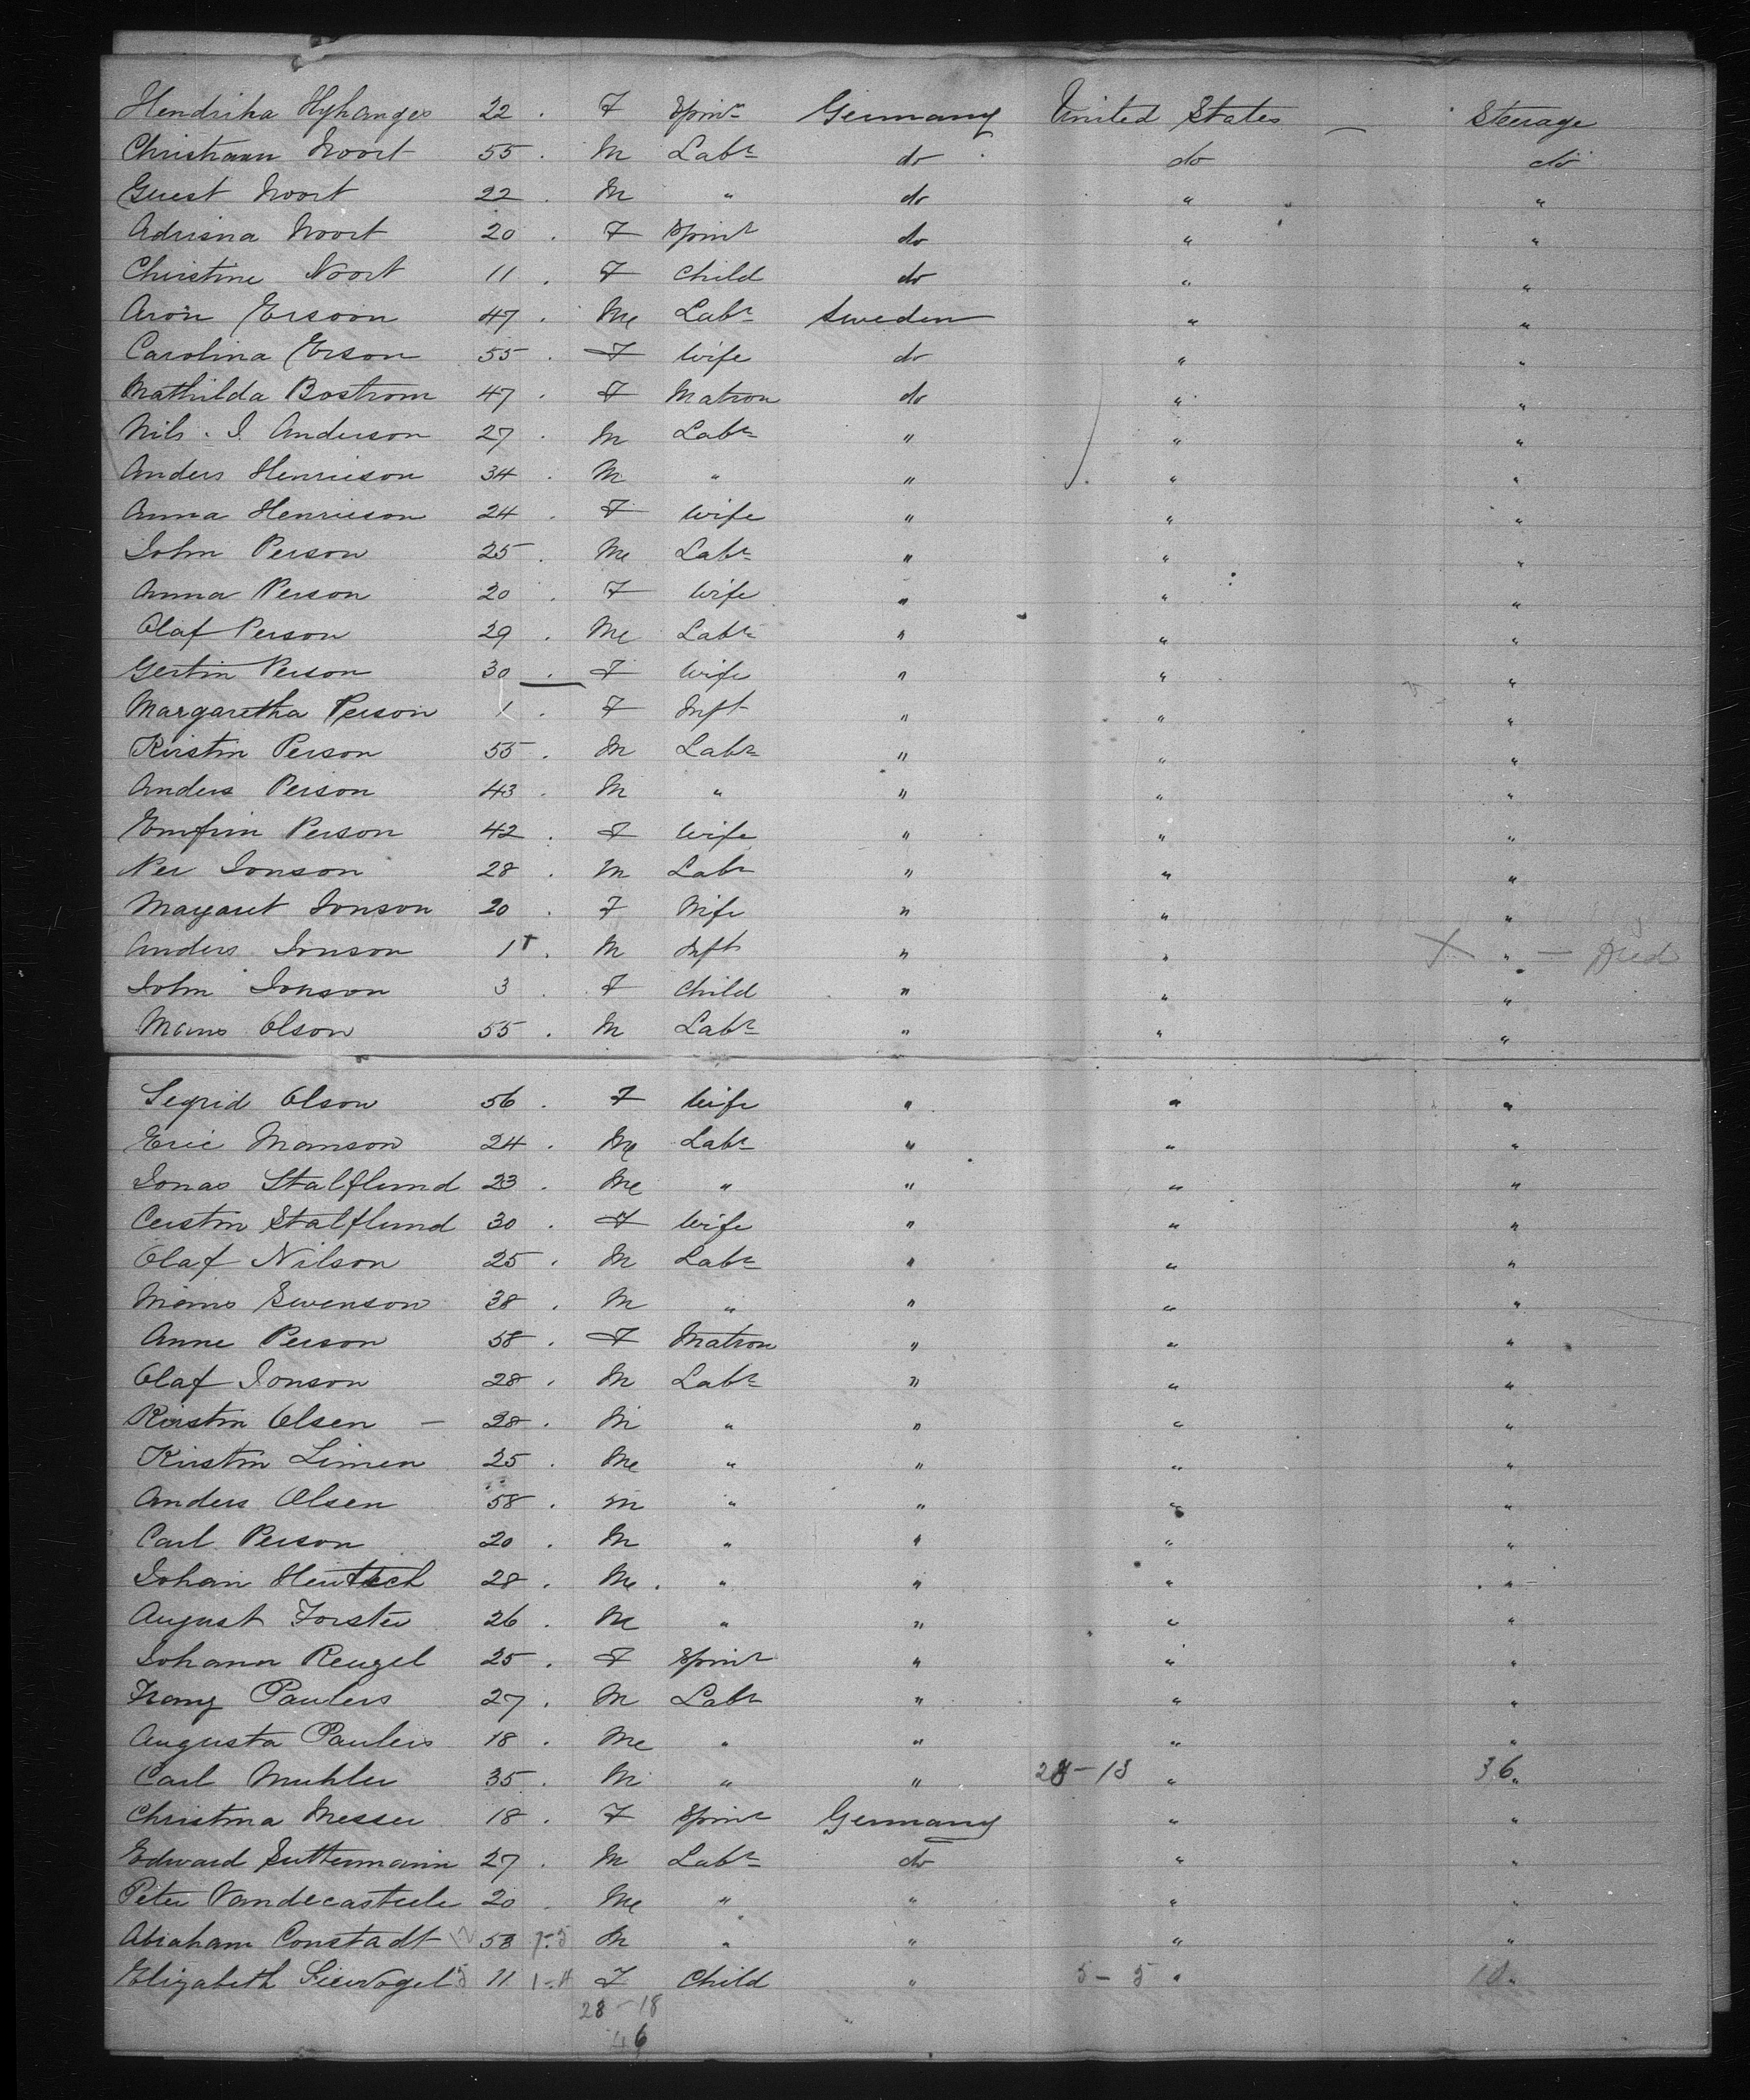 Hendrika Hyhanges 22 . F Spinr Germany United States — Steerage
Christiaan Noort 55 . M Labr do do do
Guest Noort 22 . M " do " "
Adriana Noort 20 . F Spinr do " "
Christine Noort 11 . F Child do " "
Aron Ersoon 47 . M Labr Sweden " "
Carolina Erson 55 . F Wife do " "
Mathilda Bostrom 47 . F Matron do " "
Nils . I. Anderson 27 . M Labr " " "
Anders Henricson 34 . M " " " "
Anna Henricson 24 . F Wife " " "
John Person 25 . M Labr " " "
Anna Person 20 . F Wife " " "
Olaf Person 29 . M Labr " " "
Gertin Person 30 . F Wife " " "
Margaretha Person 1 . F Inft " " "
Kirstin Person 55 . M Labr " " "
Anders Person 43 . M " " " "
Person 42 . F Wife " " "
Per Jonson 28 . M Labr " " "
Margaret Jonson 20 . F Wife " " "
Anders Jonson 1 + . M Inft " " X " — Died
John Jonson 3 . F Child " " "
Mans Olson 55 . M Labr " " "
Segrid Olson 56 . F Wife " " "
Eric Manson 24 . M Labr " " "
Jonas Stalflund 23 . M " " " "
Cerstin Stalflund 30 . F Wife " " "
Olaf Nilson 25 . M Labr " " "
Mans Swenson 38 . M " " " "
Anne Person 58 . F Matron " " "
Olaf Jonson 28 . M Labr " " "
Kirstin Olsen — 28 . M " " " "
Kirstin Limen 25 . M " " " "
Anders Olsen 58 . M " " " "
Carl Person 20 . M " " " "
Johan 28 . M . " " " "
August Forster 26 . M " " " "
Johann Reugel 25 . F Spinr " " "
Franz Paulers 27 . M Labr " " "
Augusta Paulers 18 . M " " " "
Carl Muhler 35 . M " " 28-18 " 36 "
Christina Messer 18 . F Spinr Germany " "
Edward Suttermann 27 . M Labr do " "
Peter Vandecasteele 20 . M " " " "
Abraham Constadt 53 M " " " "
Elizabeth 11 F Child " 5-5 " 10 "
28-18
46